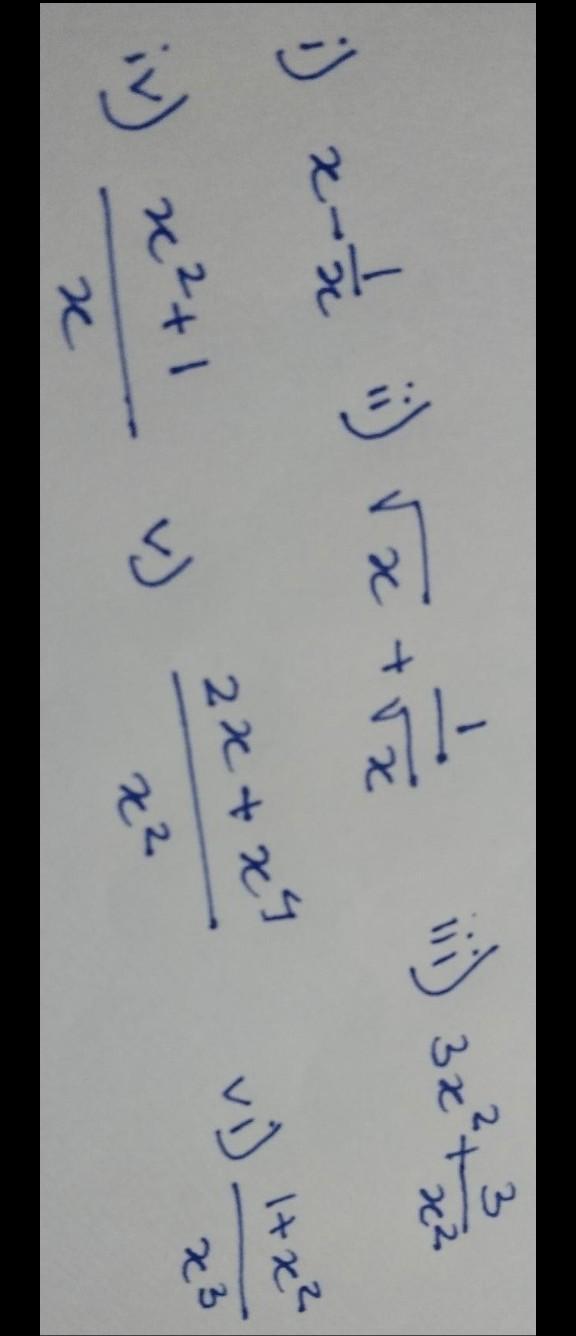 i) x - 1/x ii) √x + 1/√x iii) 3x² + 3/x²
iv) x² + 1 / x v) 2x + x⁴ / x² vi) 1 + x² / x³